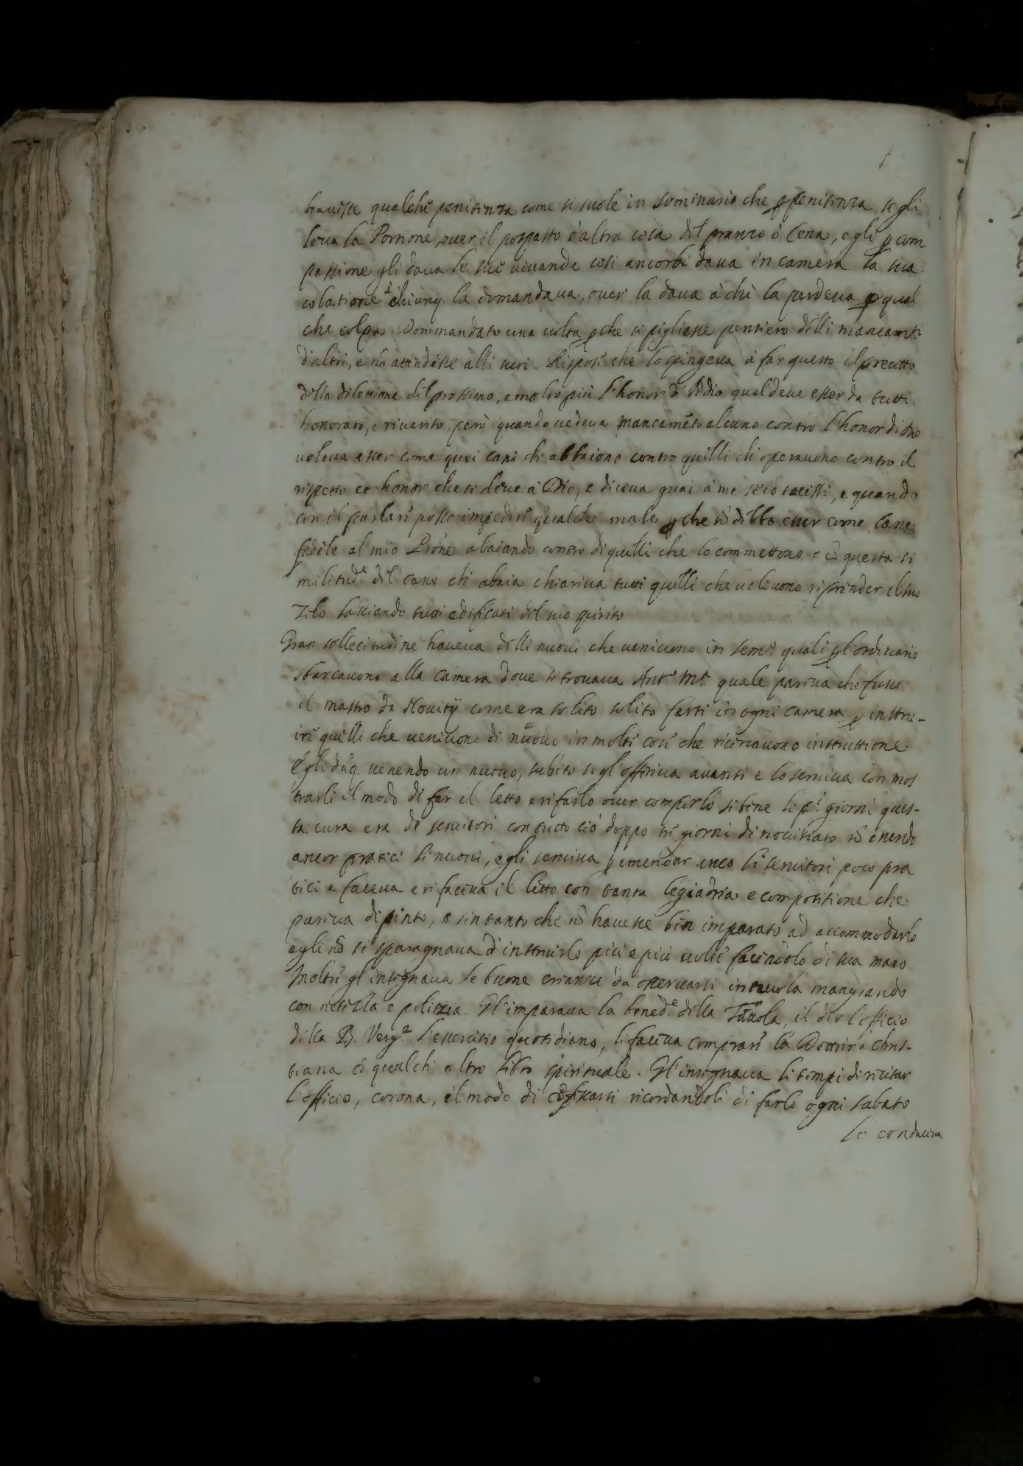 haueste qualche penitenza come si suole in Seminario che p penitenza se gli
leua la Portione, ouer il pospasto ò altra cosa del pranzo ò Cena, egli p com
passione gli daua le sue uiuande cosi ancora daua in camera la sua
colatione à chiunq. la domandaua, ouer la daua à chi la perdeua p qual
che colpa. Dommandato una uolta pche si pigliasse pensiero delli mancam.ti
d'altri, e nõ attendesse alli suoi. Rispose che lo spingeua à far questo il precetto
della dilettione del prossimo, e molto più l'honor di Iddio qual deue esser da tutti
honorato, e riuerito, però quando uedeua mancamẽto alcuno contro l'honor di Dio
uoleua esser come quei cani che abbaiono contro quelli che operauono contro il
rispetto et honor che si deue à Dio, e diceua guai à me se io tacessi, e quando
con il parlar posso impedir qualche male pche nõ debbo esser come Cane
fedele al mio Prõne abaiando contro di quelli che lo commettono e cõ questa si
militud.e del Cane che abaia chiariua tutti quelli che uoleuono riprender il suo
zelo lasciando tutti edificati del suo spirito
Gran sollecitudine haueua delli nuoui che ueniuono in sem.o quali p l'ordinario
sbarcauono alla Camera doue si trouaua Ant.o M.a quale pareua che fusse
il mastro de Nouitij come era solito solito farsi in ogni camera p instru-
ire quelli che ueniuono di nuouo in molte cose che ricercauono instruttione
Egli dũq. uenendo un nuouo, subito se gl'offeriua auanti e lo seruiua con mos
trarli il modo di far il letto e rifarlo ouer comporlo se bene le p.e giorni ques-
ta cura era de seruitori con tutto ciò doppo tre giorni di nouitiato nõ essendo
ancor pratici li nuoui, egli seruiua p emendar anco li seruitori poco pra
tici e faceua e rifaceua il letto con tanta legiadria e compositione che
pareua dipinto, e sin tanto che nõ hauesse ben imparato ad accommodarlo
egli nõ si sparagnaua d'instruirlo più e più uolte facẽdolo di sua mano
Inoltre gl'insegnaua le buone creanze da osseruarsi in tauola mangiando
con nettezza e politezza. Gl'imparaua la bened.e della Tauola, il dir l'officio
della B. Verg.e l'essercitio quotidiano, li faceua comprar la Dottrina Chris-
tiana cõ qualche altro libro spirituale. Gl'insegnaua li tempi di recitar
l'officio, corona, e il modo di cõfessarsi ricordandoli di farlo ogni sabato
Lo conduceua